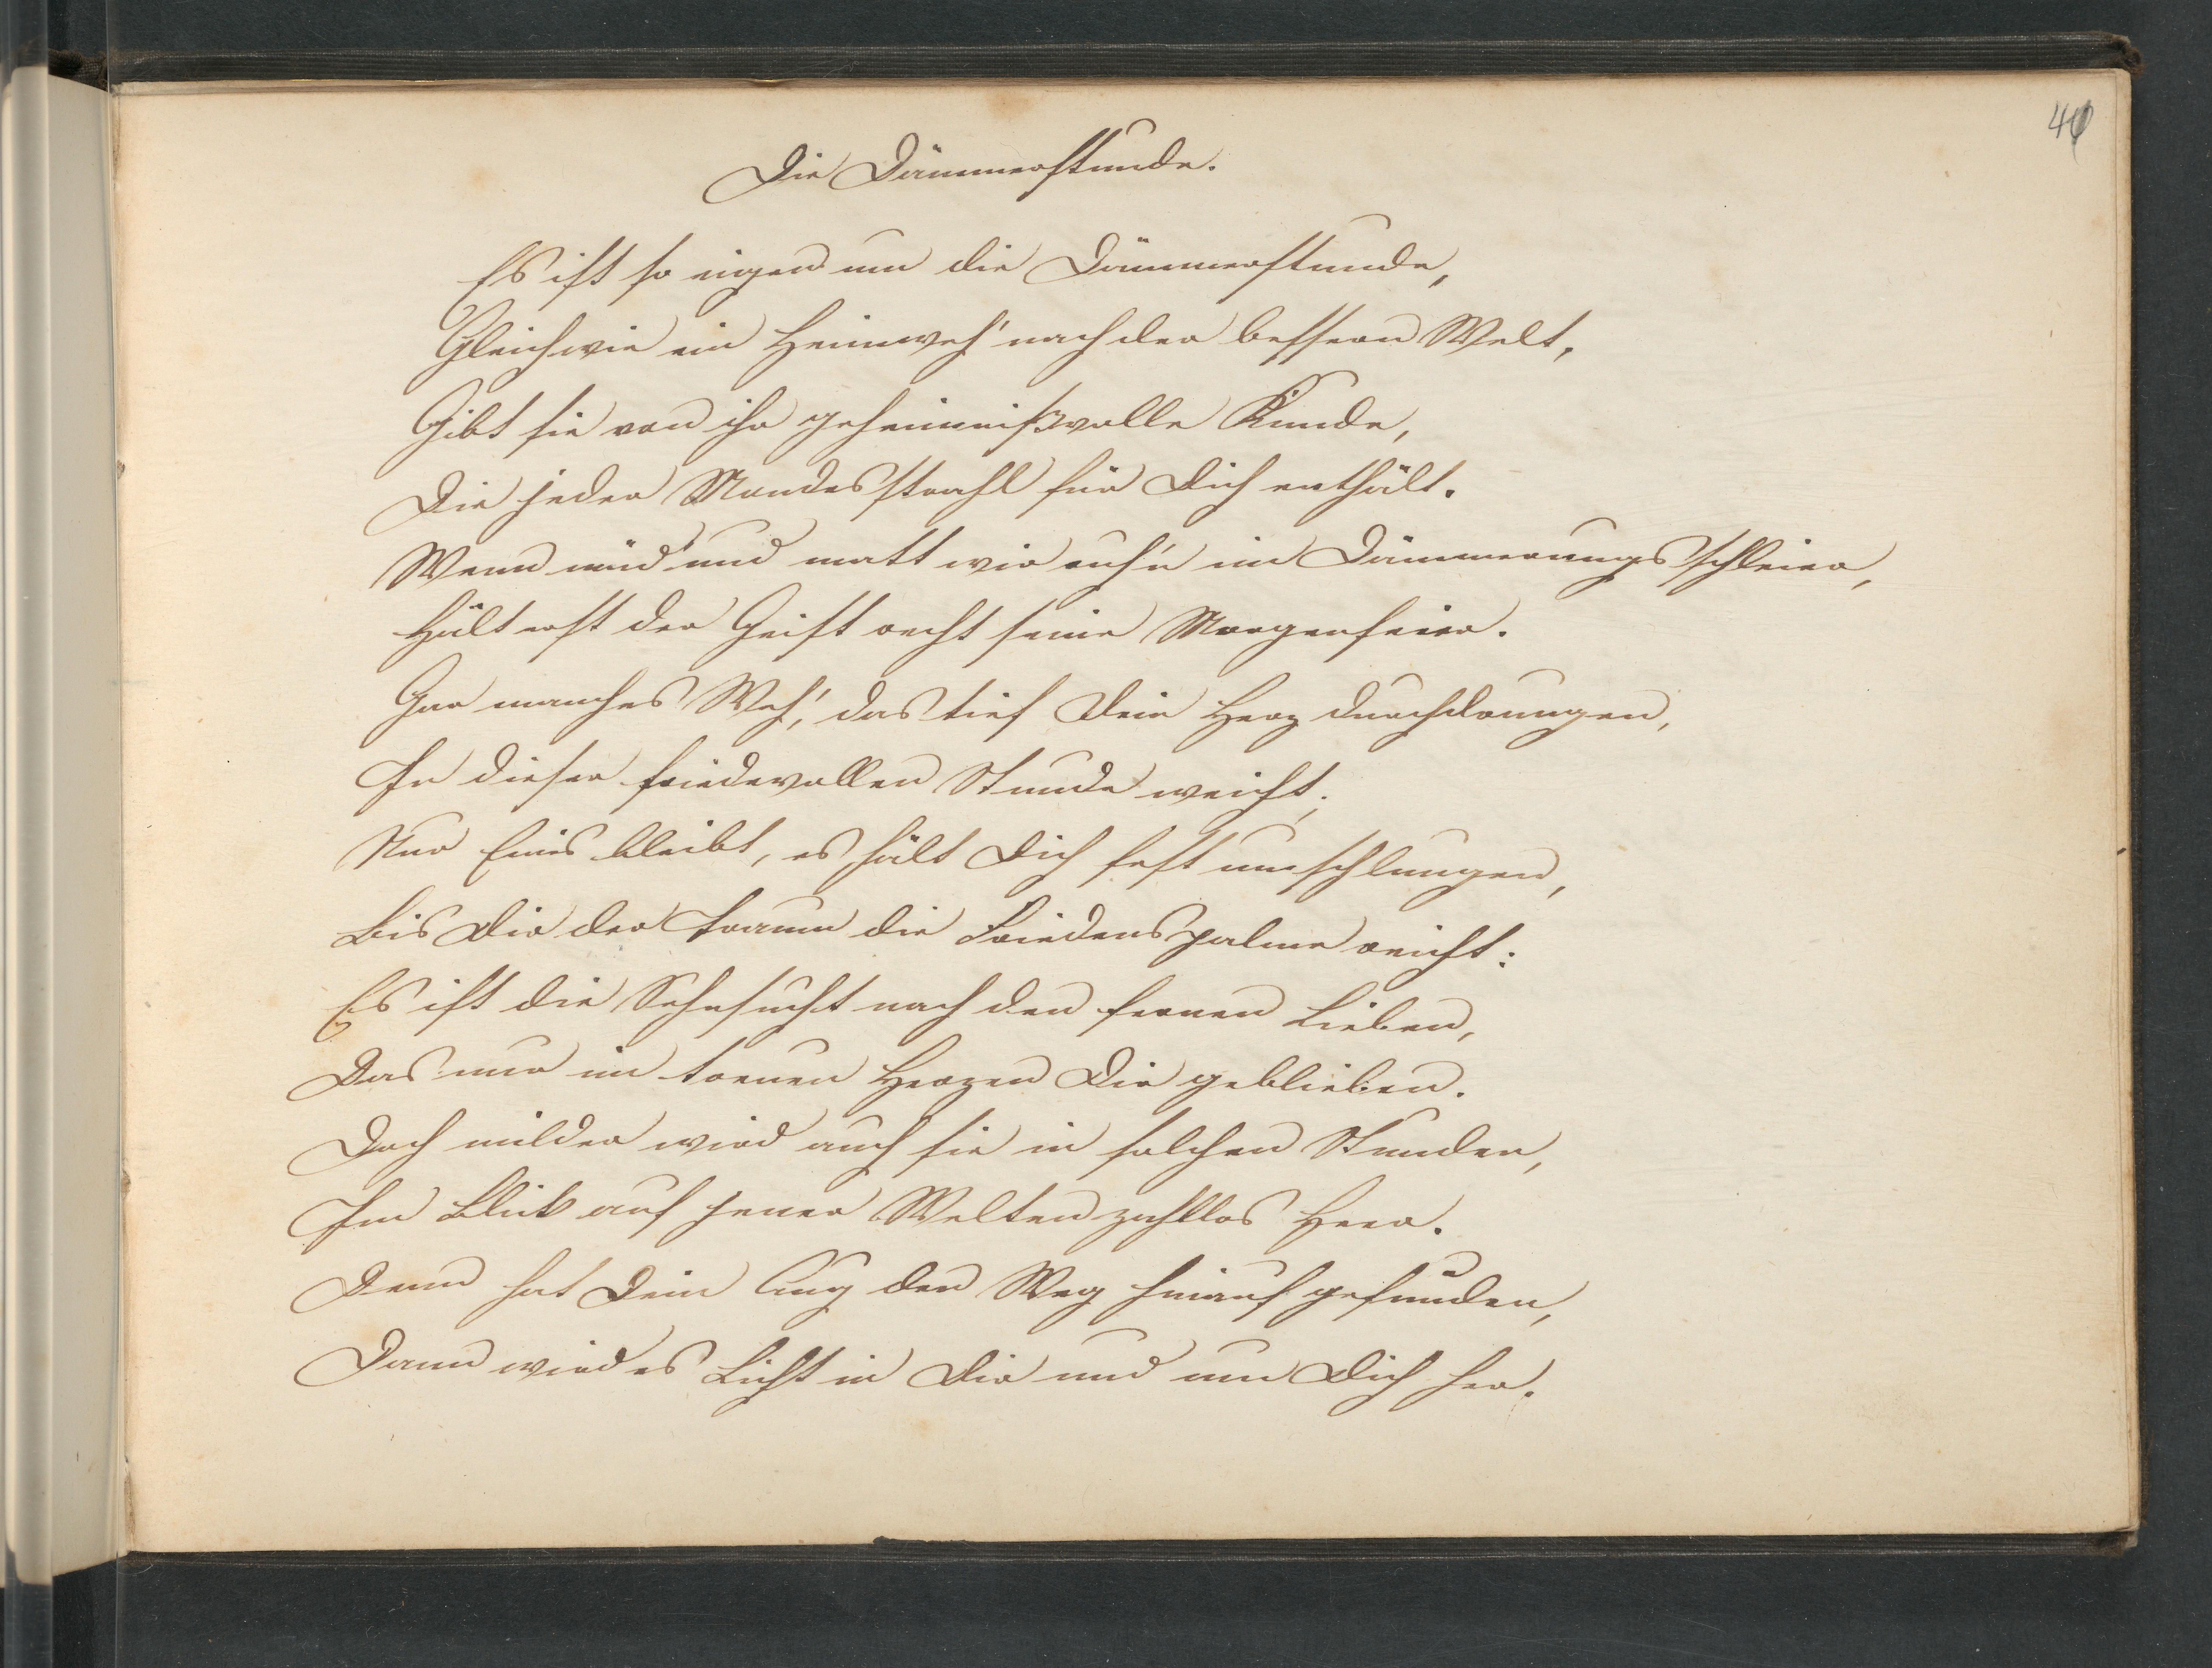 40
Die Dämmerstunde.
Es ist so eigen um die Dämmerstunde,
Gleichwie ein Heimweh' nach der bessern Welt,
Gibt sie von ihr geheimnißvolle Kunde,
Die jeder Mondesstrahl für Dich enthält.
Wenn müd' und matt wir ruh'n im Dämmerungsschleier,
Hält erst der Geist recht seine Morgenfeier.
Gar manches Weh', das tief Dein Herz durchdrungen,
In dieser friedevollen Stunde weicht;
Nur Eines bleibt, es hält Dich fest umschlungen,
Bis Dir der Traum die Friedenspalme reicht:
Es ist die Sehnsucht nach den fernen Lieben,
Das nur im treuen Herzen Dir geblieben.
Doch milder wird auch sie in solchen Stunden,
Im Blick auf jener Welten zahllos Heer.
Denn hat Dein Aug den Weg hinauf gefunden,
Dann wird es Licht in Dir und um Dich her.